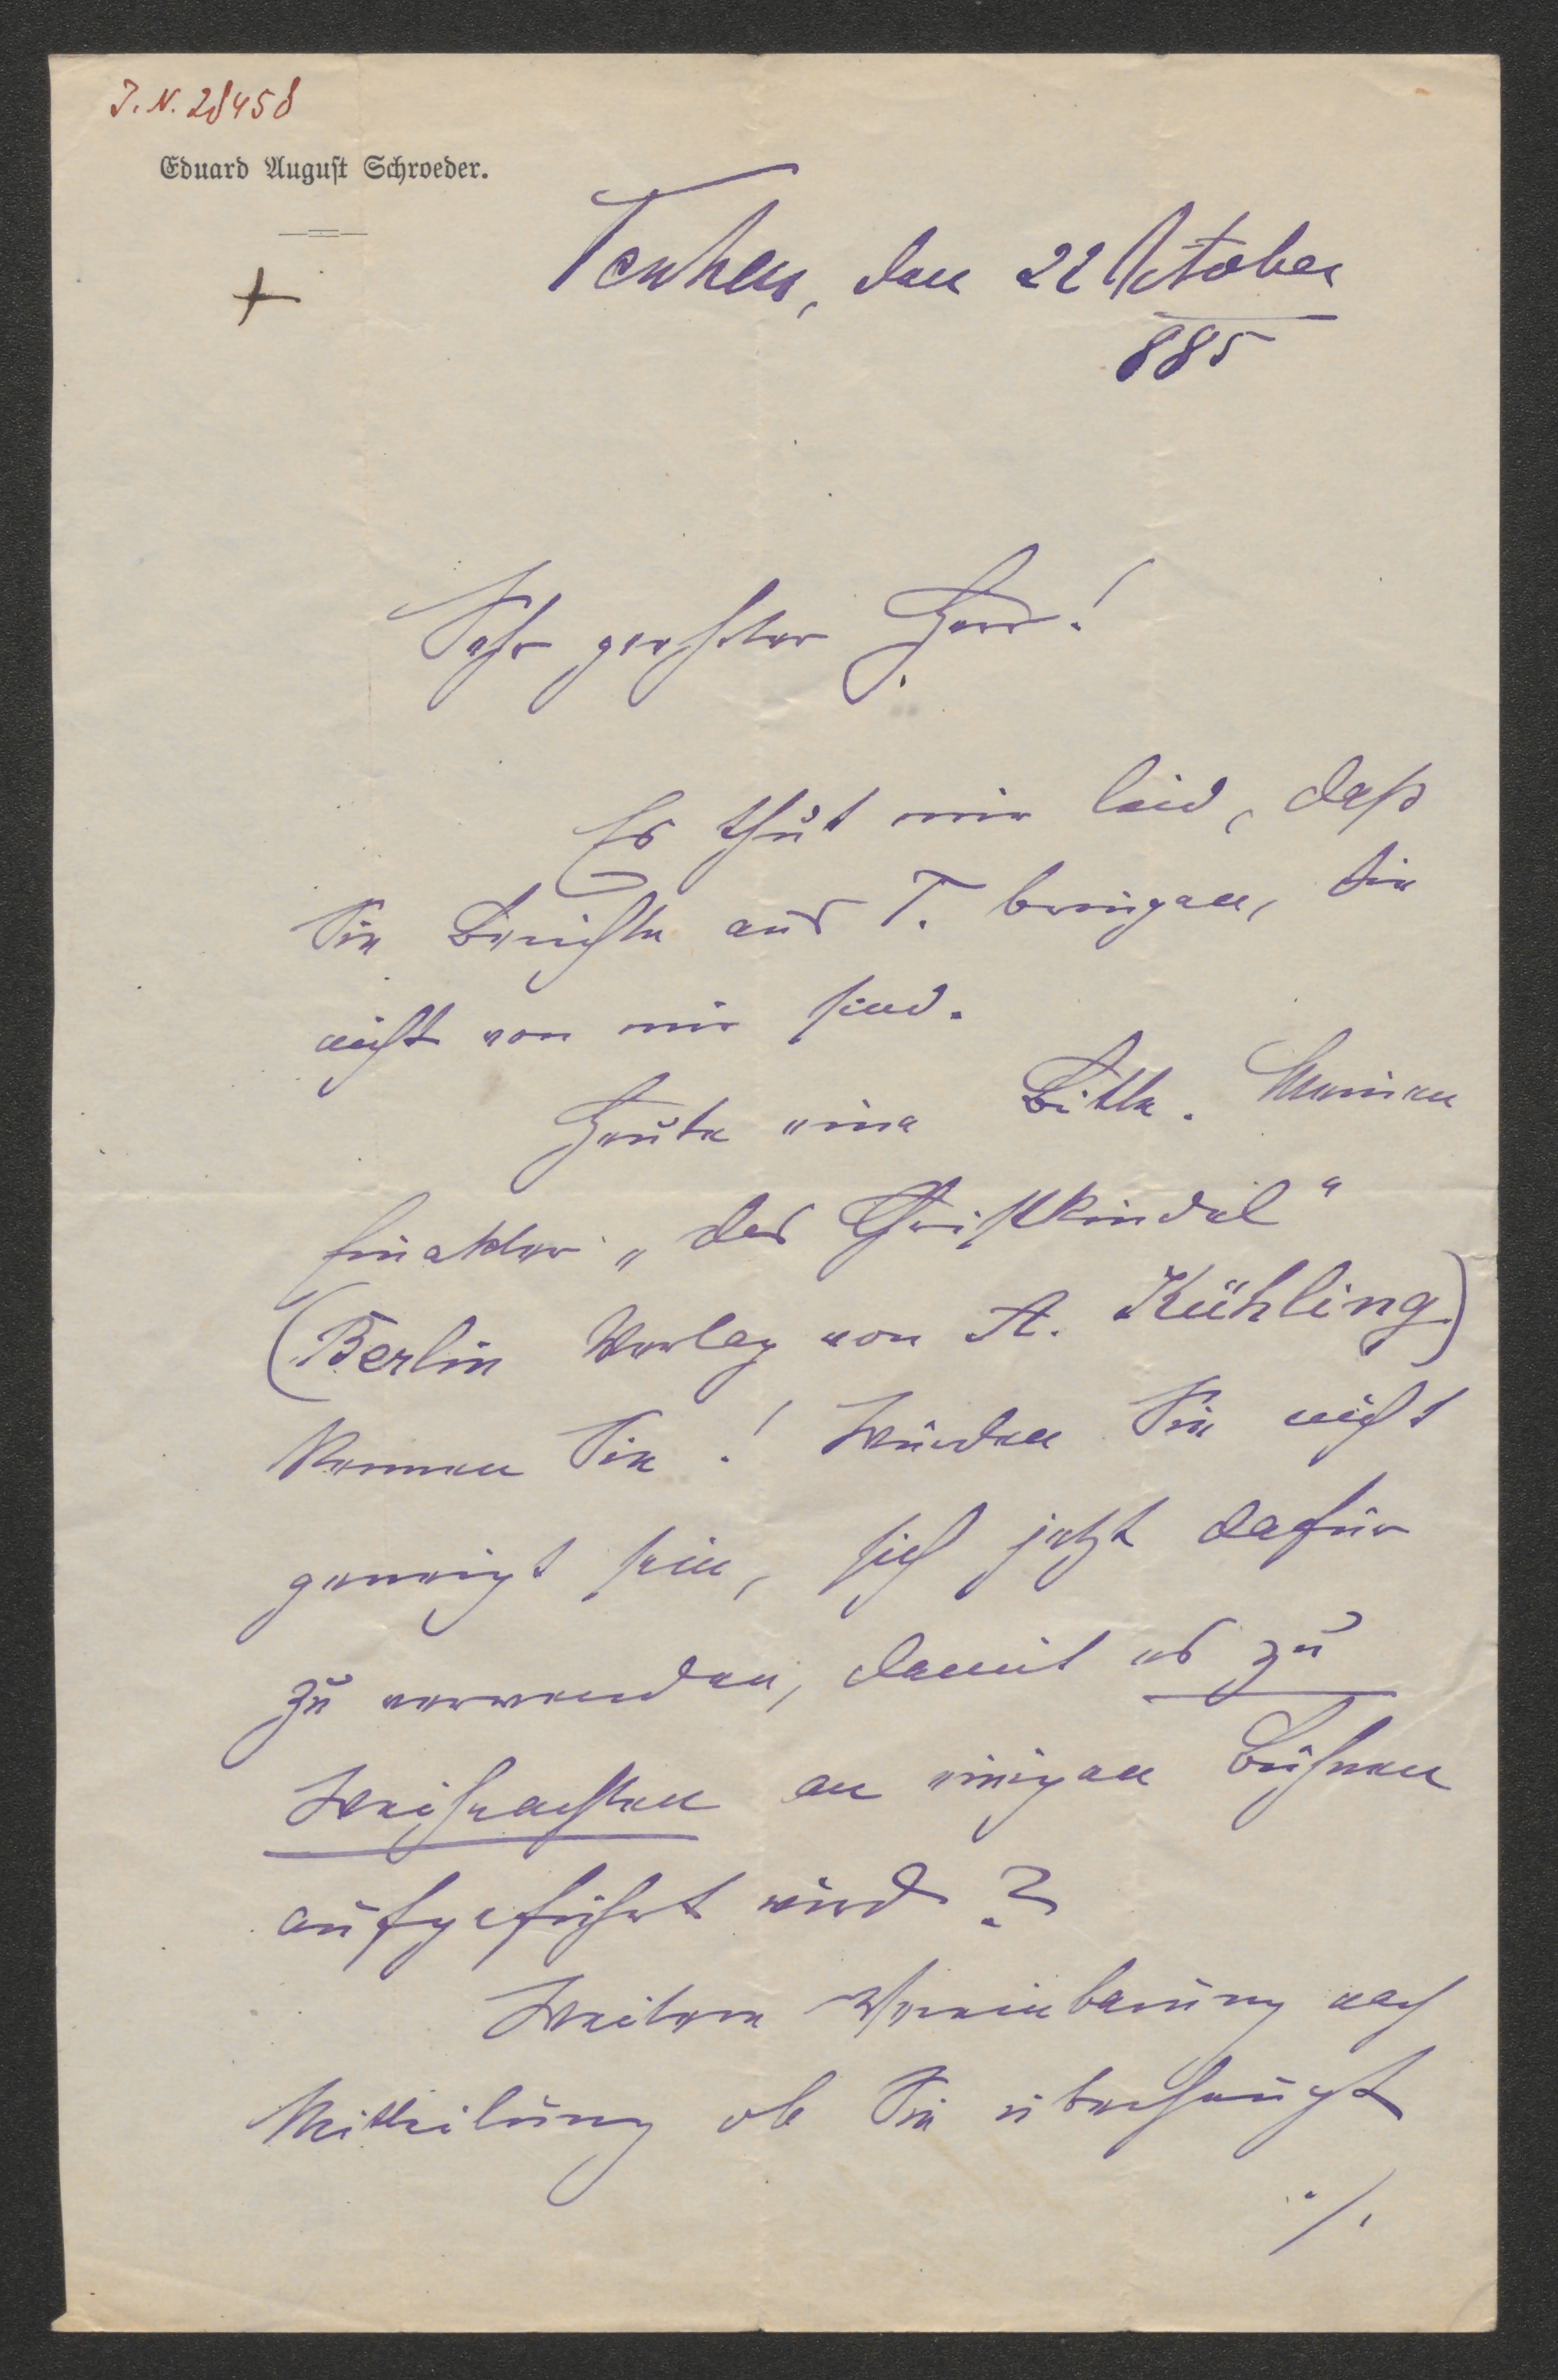 J. N. 28458
Eduard August Schroeder.
Teschen, den 22 October
885
Sehr geehrter Herr!
Es thut mir leid, daß
Sie Berichte aus T. bringen, die
nicht von mir sind.
Heute eine Bitte. Meinen
Einakter „das Christkindel"
(Berlin Verlag von A. Kühling)
kennen Sie! Würden Sie nicht
geneigt sein, sich jetzt dafür
zu verwenden, damit es zu
Weihnachten an einigen Bühnen
aufgeführt wird?
Weitere Vereinbarung nach
Mitteilung ob Sie überhaupt
./.